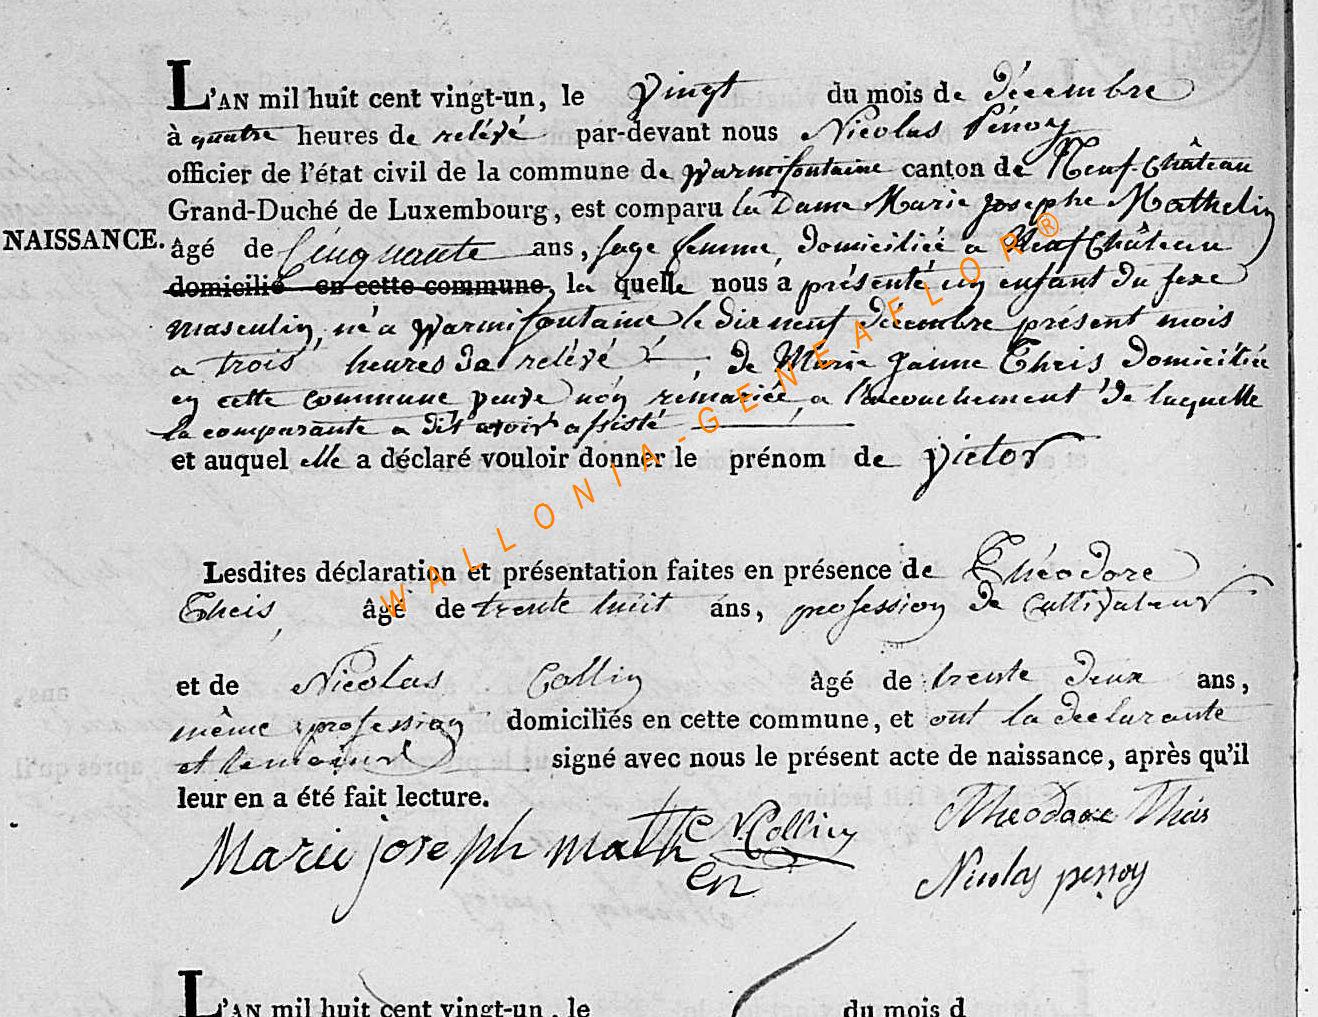 L'AN mil huit cent vingt-un, le vingt du mois de décembre
à quatre heures de relévé par-devant nous Nicolas Pénoy
officier de l'état civil de la commune de Warmifontaine canton de Neuf-Château
Grand-Duché de Luxembourg, est comparu la Dame Marie josephe Mathelin
NAISSANCE. âgé de Cinquante ans, sage femme, domiciliée a Neufchâteau
domicilié en cette commune, la quelle nous a présenté un enfant du sexe
masculin, né a Warmifontaine le dix neuf décembre présent mois
a trois heures de relévé, de Marie jeanne Theis domiciliée
en cette commune veuve non rémariée, a l'acouchement de laquelle
la comparante a dit avoir assisté
et auquel elle a déclaré vouloir donner le prénom de victor
Lesdites déclaration et présentation faites en présence de Théodore
Theis, âgé de trente huit ans, profession de cultivateur
et de Nicolas Collin âgé de trente deux ans,
même profession domiciliés en cette commune, et ont la déclarante
et témoins signé avec nous le présent acte de naissance, après qu'il
leur en a été fait lecture.
Marie joseph math N. Collin Theodore Theis
Nicolas penoy
WALLONIA-GENEAFLOR®
L'AN mil huit cent vingt-un, le du mois d